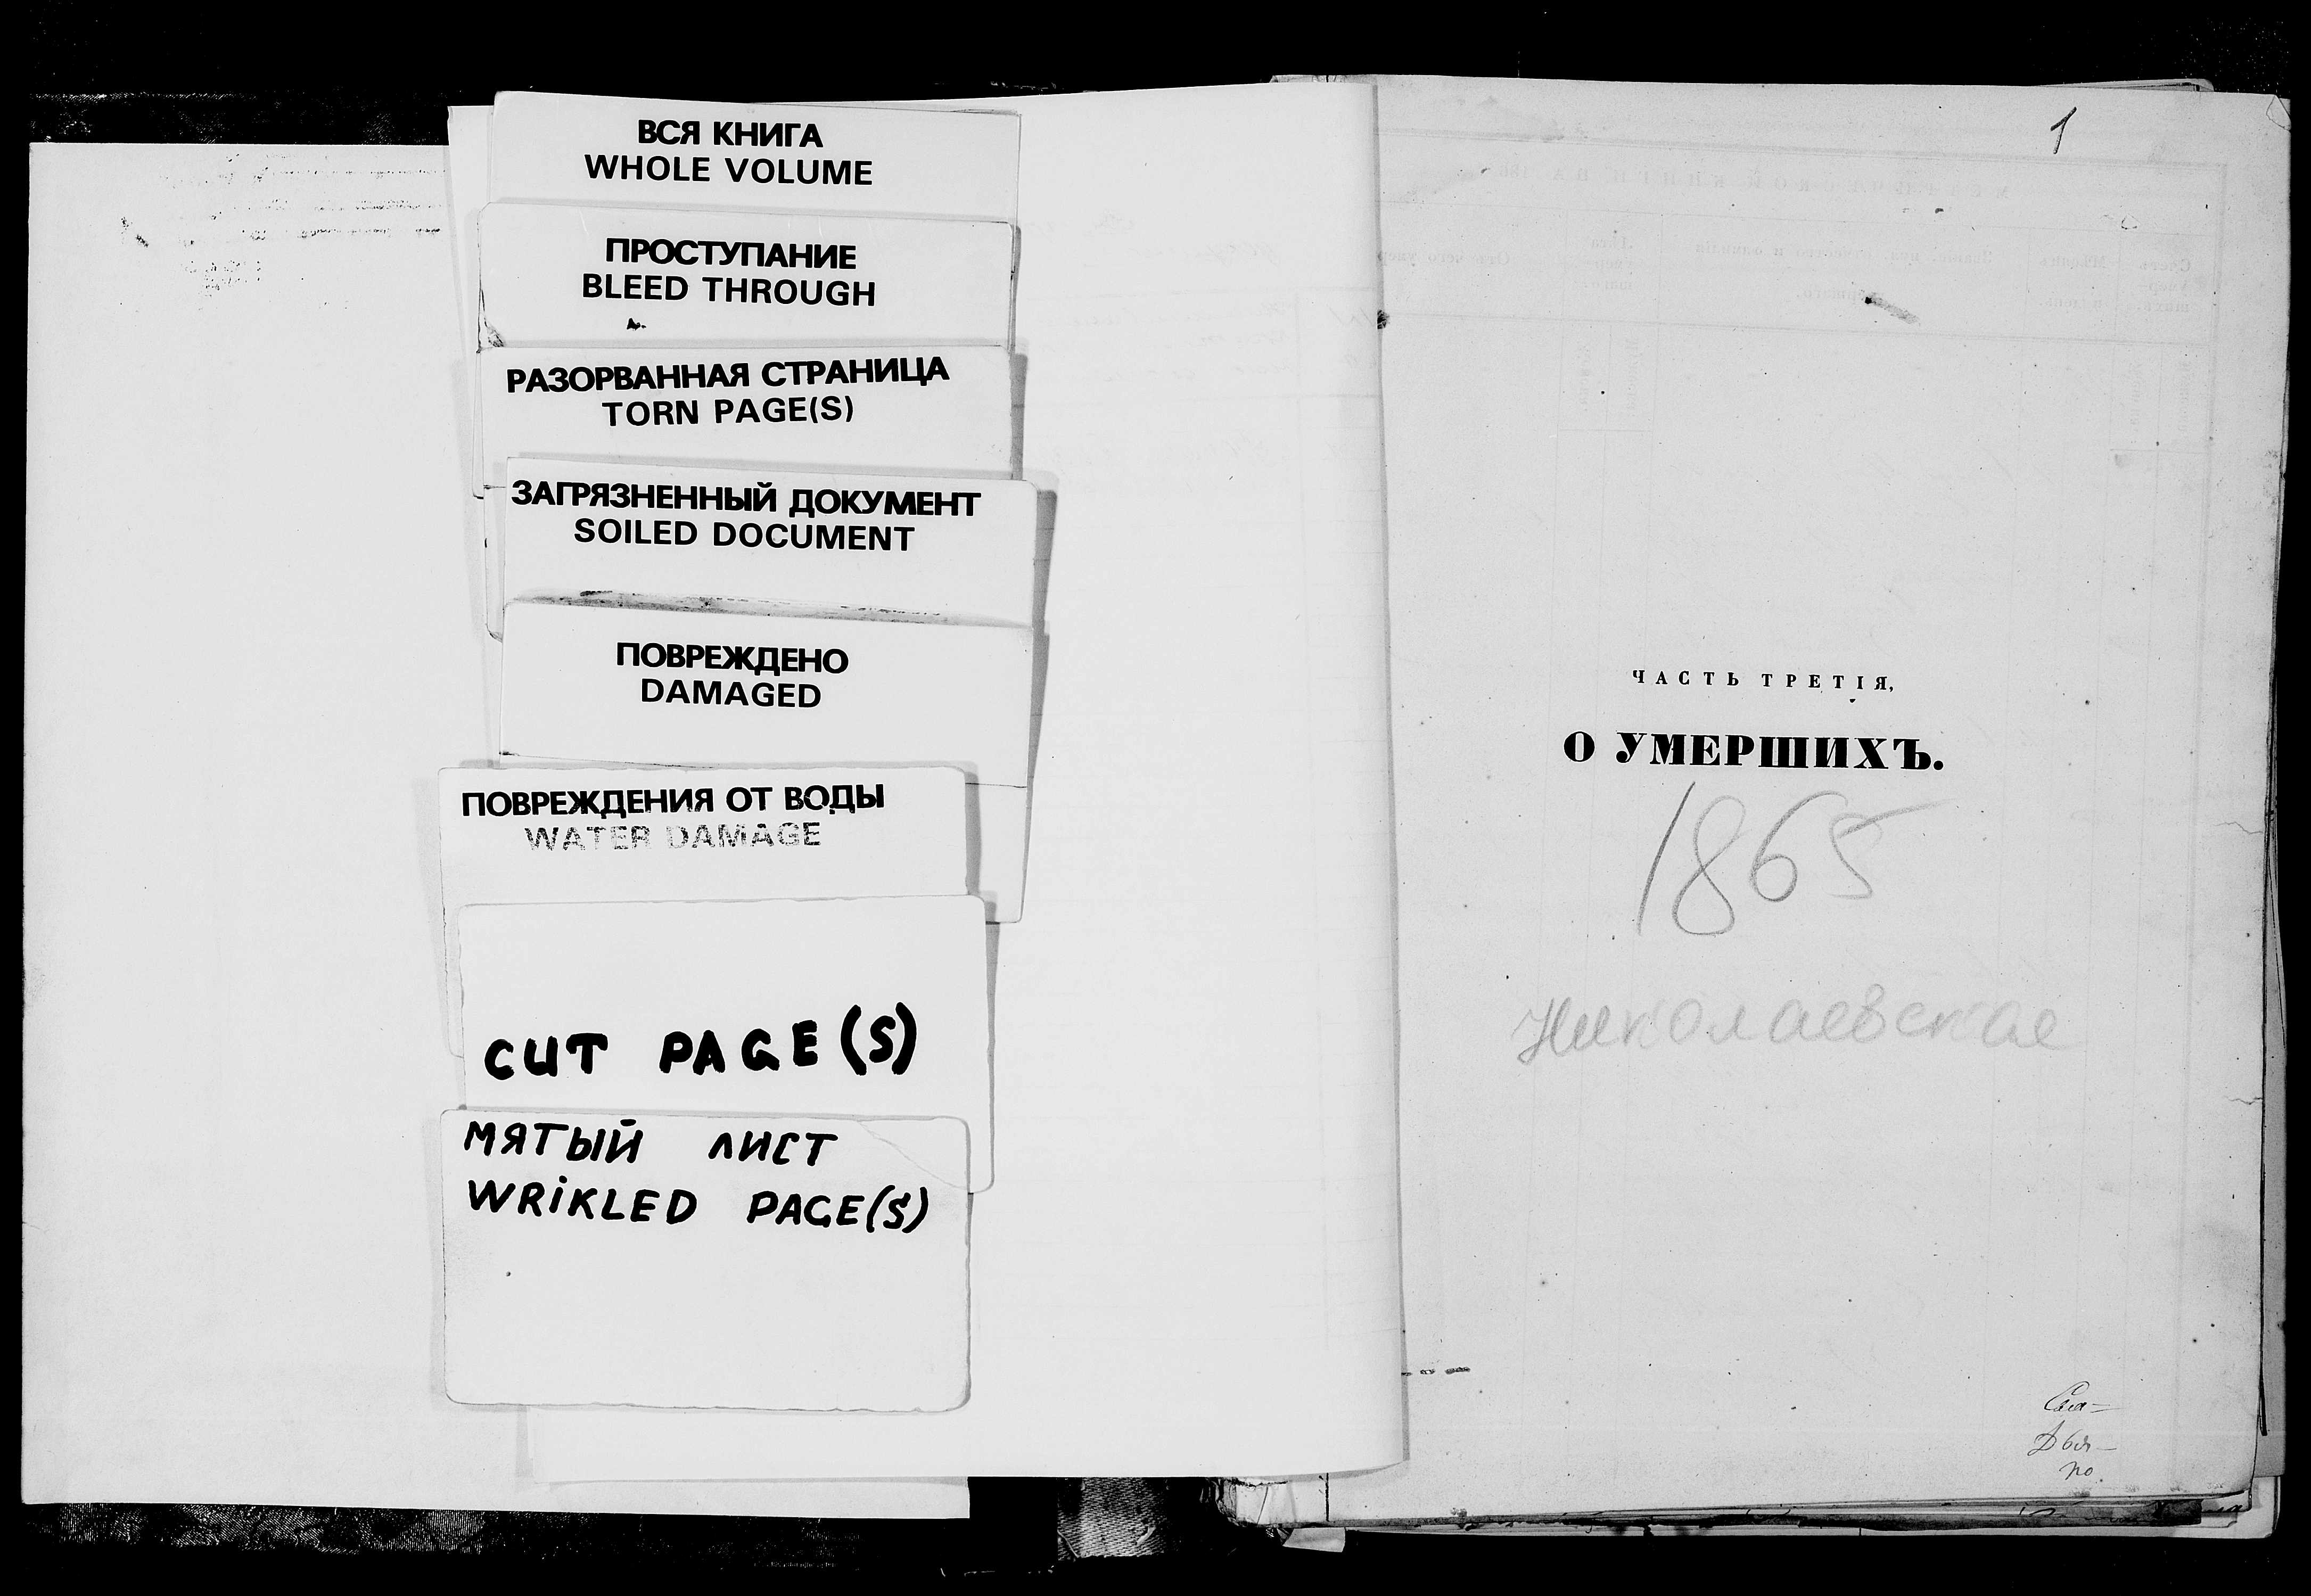 ВСЯ КНИГА
WHOLE VOLUME
ПРОСТУПАНИЕ
BLEED THROUGH
РАЗОРВАННАЯ СТРАНИЦА
TORN PAGE(S)
ЗАГРЯЗНЕННЫЙ ДОКУМЕНТ
SOILED DOCUMENT
ПОВРЕЖДЕНО
DAMAGED
ПОВРЕЖДЕНИЯ ОТ ВОДЫ
WATER DAMAGE
CUT PAGE(S)
МЯТЫЙ ЛИСТ
WRIKLED PAGE(S)
1
ЧАСТЬ ТРЕТІЯ,
О УМЕРШИХЪ.
1865
Николаевская
по